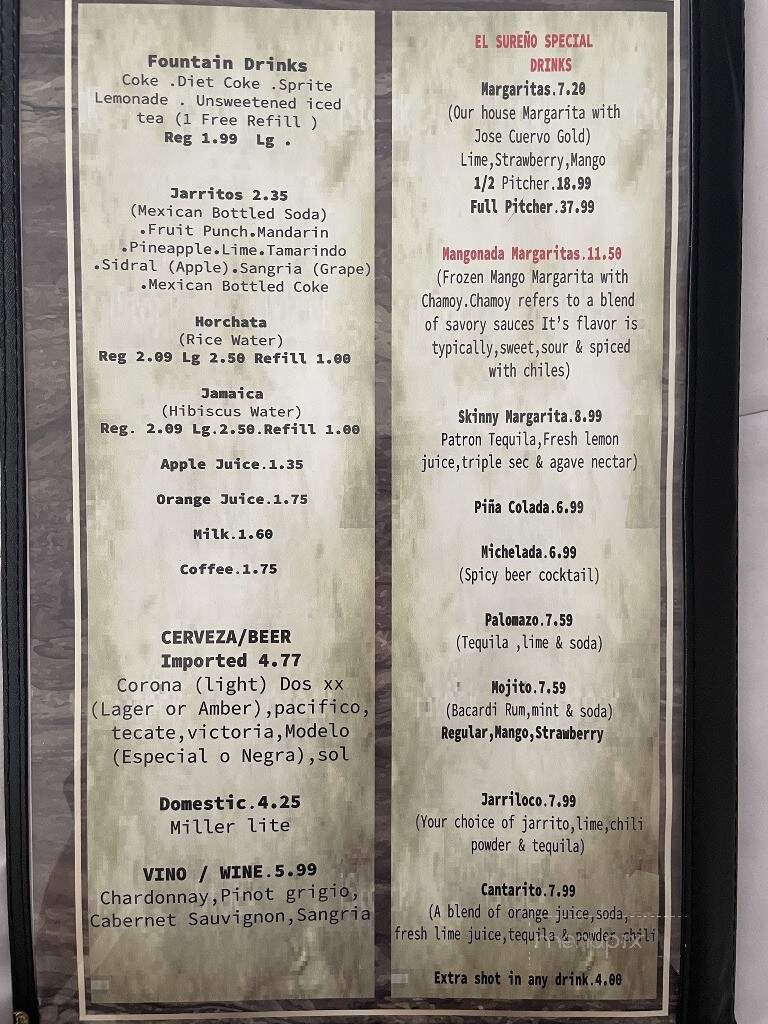 Fountain Drinks
Coke .Diet Coke .Sprite
Lemonade . Unsweetened iced
tea (1 Free Refill )
Reg 1.99 Lg .
Jarritos 2.35
(Mexican Bottled Soda)
.Fruit Punch.Mandarin
.Pineapple.Lime.Tamarindo
.Sidral (Apple).Sangria (Grape)
.Mexican Bottled Coke
Horchata
(Rice Water)
Reg 2.09 Lg 2.50 Refill 1.00
Jamaica
(Hibiscus Water)
Reg. 2.09 Lg.2.50.Refill 1.00
Apple Juice.1.35
Orange Juice.1.75
Milk.1.60
Coffee.1.75
CERVEZA/BEER
Imported 4.77
Corona (light) Dos xx
(Lager or Amber),pacifico,
tecate,victoria,Modelo
(Especial o Negra),sol
Domestic.4.25
Miller lite
VINO / WINE.5.99
Chardonnay,Pinot grigio,
Cabernet Sauvignon,Sangria
EL SUREÑO SPECIAL
DRINKS
Margaritas.7.20
(Our house Margarita with
Jose Cuervo Gold)
Lime,Strawberry,Mango
1/2 Pitcher.18.99
Full Pitcher.37.99
Mangonada Margaritas.11.50
(Frozen Mango Margarita with
Chamoy.Chamoy refers to a blend
of savory sauces It's flavor is
typically,sweet,sour & spiced
with chiles)
Skinny Margarita.8.99
Patron Tequila,Fresh lemon
juice,triple sec & agave nectar)
Piña Colada.6.99
Michelada.6.99
(Spicy beer cocktail)
Palomazo.7.59
(Tequila ,lime & soda)
Mojito.7.59
(Bacardi Rum,mint & soda)
Regular,Mango,Strawberry
Jarriloco.7.99
(Your choice of jarrito,lime,chili
powder & tequila)
Cantarito.7.99
(A blend of orange juice,soda,
fresh lime juice,tequila & powder chili
menupix
Extra shot in any drink.4.00